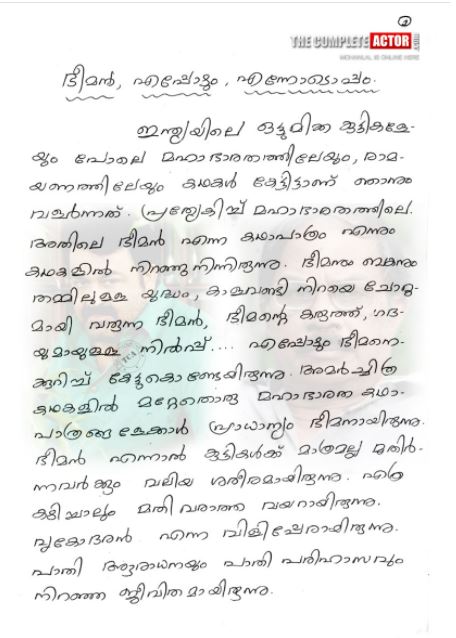 2
THE COMPLETE ACTOR .NET
MOHANLAL IS ONLINE HERE
ഭീമൻ, എപ്പോഴും, എന്നോടൊപ്പം.
ഇന്ത്യയിലെ ഒട്ടുമിക്ക കുട്ടികളേ-
യും പോലെ മഹാഭാരതത്തിലേയും, രാമ-
യണത്തിലേയും കഥകൾ കേട്ടിട്ടാണ് ഞാനും
വളർന്നത്. പ്രത്യേകിച്ച് മഹാഭാരതത്തിലെ.
അതിലെ ഭീമൻ എന്ന കഥാപാത്രം എന്നും
കഥകളിൽ നിറഞ്ഞുനിന്നിരുന്നു. ഭീമനും ബകനും
തമ്മിലുള്ള യുദ്ധം, കാളവണ്ടി നിറയെ ചോറു-
മായി വരുന്ന ഭീമൻ, ഭീമന്റെ കരുത്ത്, ഗദ-
യുമായുള്ള നിൽപ്പ്.... എപ്പോഴും ഭീമനെ-
ക്കുറിച്ച് കേട്ടുകൊണ്ടേയിരുന്നു. അമർച്ചിത്ര
കഥകളിൽ മറ്റേതൊരു മഹാഭാരത കഥാ-
പാത്രങ്ങളേക്കാൾ പ്രാധാന്യം ഭീമനായിരുന്നു.
ഭീമൻ എന്നാൽ കുട്ടികൾക്ക് മാത്രമല്ല മുതിർ-
ന്നവർക്കും വലിയ ശരീരമായിരുന്നു. എത്ര
കഴിച്ചാലും മതി വരാത്ത വയറായിരുന്നു.
വൃകോദരൻ എന്ന വിളിപ്പേരായിരുന്നു.
പാതി ആരാധനയും പാതി പരിഹാസവും
നിറഞ്ഞ ജീവിതമായിരുന്നു.